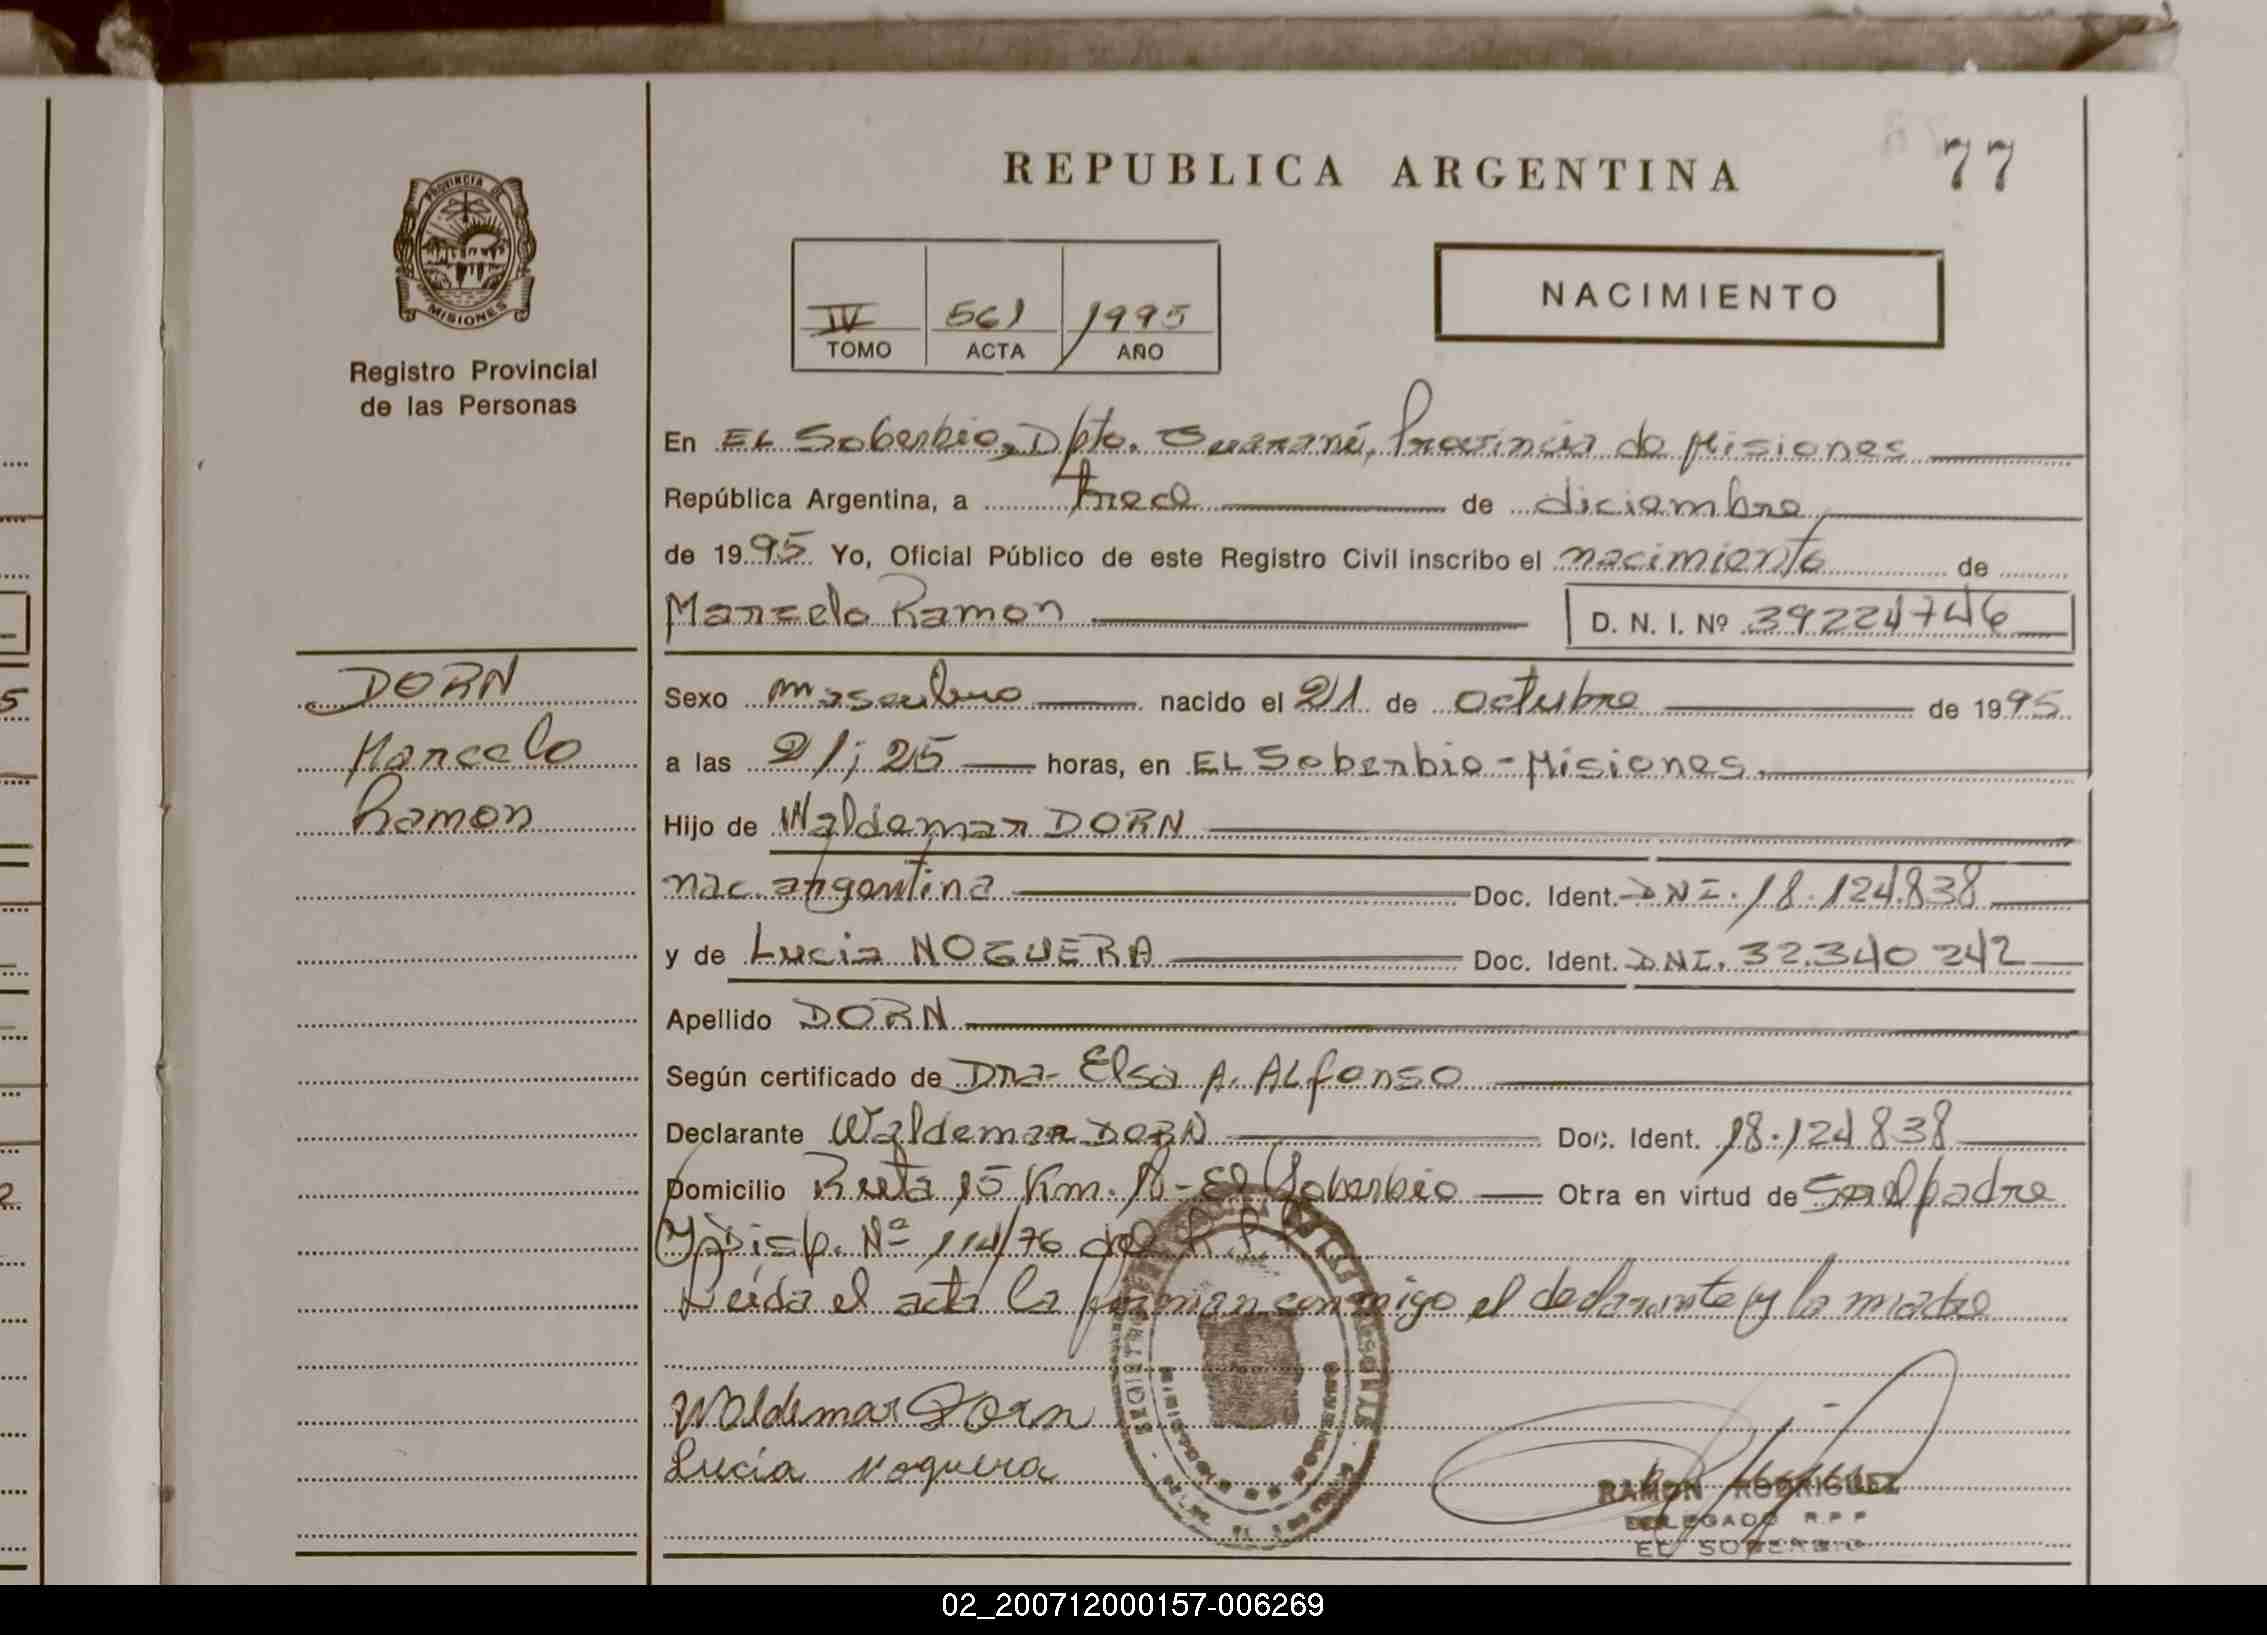 77
REPUBLICA ARGENTINA
PROVINCIA DE
MISIONES
Registro Provincial
de las Personas
NACIMIENTO
IV 561 1995
TOMO ACTA AÑO
En EL Soberbio, Dpto. Guaraní, Provincia de Misiones
República Argentina, a trece de diciembre
de 1995 Yo, Oficial Público de este Registro Civil inscribo el nacimiento de
Marcelo Ramon D. N. I. Nº 39224746
DORN
Marcelo
Ramon
Sexo masculino nacido el 21 de octubre de 1995
a las 21; 25 horas, en EL Soberbio - Misiones.
Hijo de Waldemar DORN
nac. argentina Doc. Ident. DNI. 18.124.838
y de Lucia NOGUERA Doc. Ident. DNI. 32.340 242
Apellido DORN
Según certificado de Dra- Elsa A. ALfonso
Declarante Waldemar DORN Doc. Ident. 18.124 838
Domicilio Ruta 15 Km. - El Soberbio Obra en virtud de padre
y Disp. Nº 114/76 del R.P.
Leída el acta la firman conmigo el declarante y la madre
Waldemar Dorn
Lucía Noguera
RAMON RODRIGUEZ
DELEGADO R.P.P
EL SOBERBIO
02_200712000157-006269